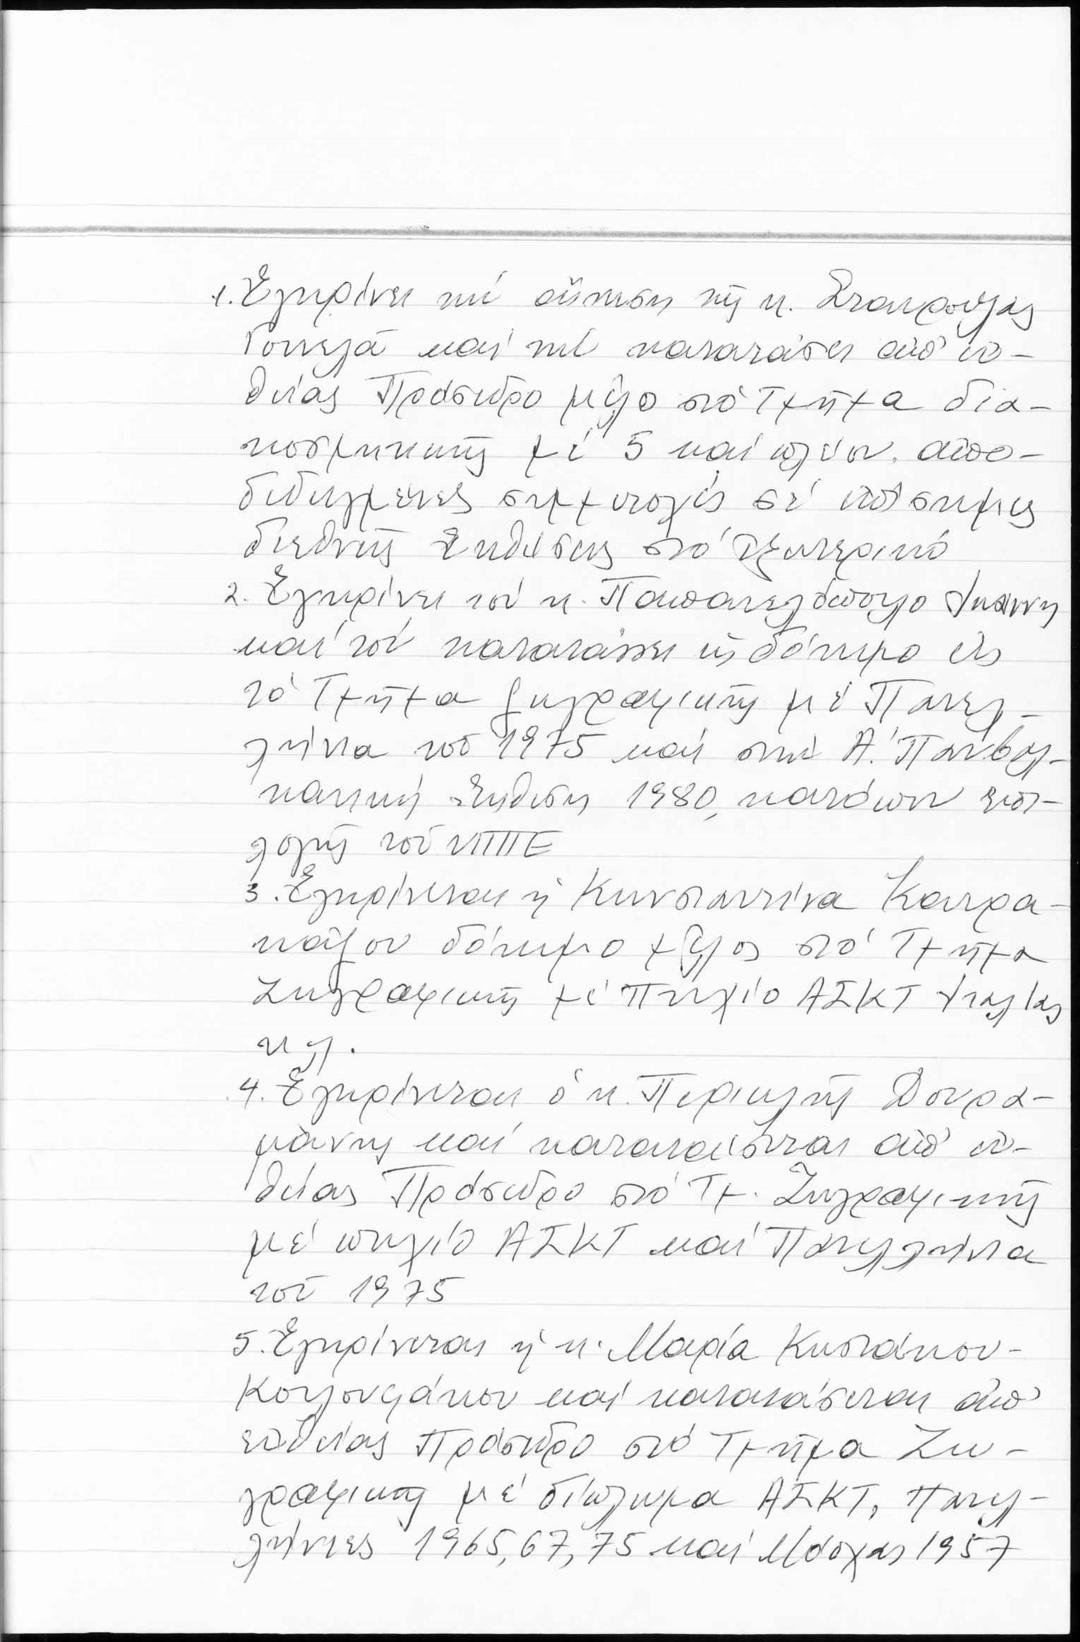 1. Ἐγκρίνει τήν αἴτηση τῆς κ. Σταυρούλας
Γουνελᾶ καί τήν κατατάσσει ἀπ' εὐ-
θείας Πρόσεδρο μέλος στό Τμῆμα δια-
κοσμητικῆς μέ 5 καί πλέον ἀπο-
δεδειγμένες συμμετοχές σέ ἐπίσημες
διεθνεῖς Ἐκθέσεις στό Ἐξωτερικό
2. Ἐγκρίνει τόν κ. Παπανελλόπουλο Γιάννη
καί τόν κατατάσσει ὡς δόκιμο εἰς
τό Τμῆμα ζωγραφικῆς μέ Πανελ-
λήνια τοῦ 1975 καί στήν Α. Πανβαλ-
κανική Ἔκθεση 1980, κατόπιν ἐπι-
λογῆς τοῦ ΥΠΠΕ
3. Ἐγκρίνεται ἡ Κωνσταντίνα Κατρα-
κάζου δόκιμο μέλος στό Τμῆμα
Ζωγραφικῆς μέ Πτυχίο ΑΣΚΤ Ἰταλίας
κλ.
4. Ἐγκρίνεται ὁ κ. Περικλῆς Δουρα-
μάνης καί κατατάσσεται ἀπ' εὐ-
θείας Πρόσεδρο στό Τμ. Ζωγραφικῆς
μέ πτυχίο ΑΣΚΤ καί Πανελλήνια
τοῦ 1975
5. Ἐγκρίνεται ἡ κ. Μαρία Κωστάκου-
Κουλουφάκου καί κατατάσσεται ἀπ'
εὐθείας Πρόσεδρο στό Τμῆμα Ζω-
γραφικῆς μέ δίπλωμα ΑΣΚΤ, Πανελ-
λήνιες 1965, 67, 75 καί Μόσχας 1957